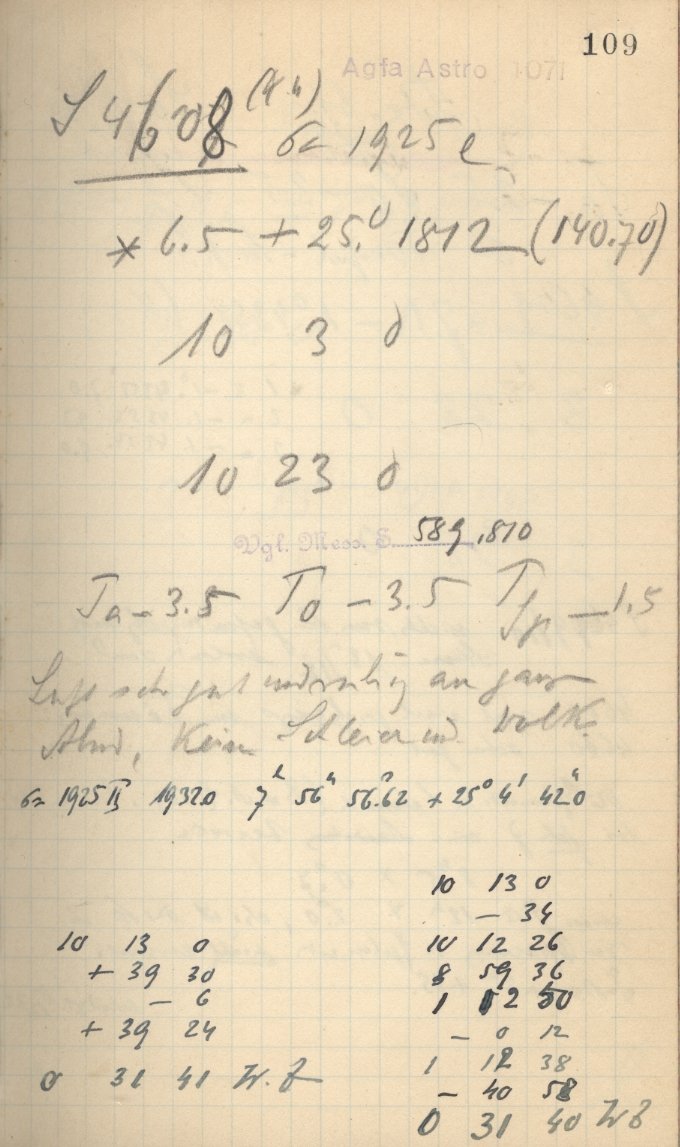 109
Agfa Astro 1071
S 4608 (4.h)
6= 1925 e
* 6.5 + 25.° 1812 (140.70)
10 3 0
10 23 0
Vgl. Mess. S. 589, 810
Ta - 3.5 To - 3.5 Tsp - 1.5
Luft sehr gut und ruhig am ganzen
Abend, Keine Schleier u. Wolk.
6= 1925 II 1932.0 7h 56m 56.s62 + 25° 4' 42."0
10 13 0
- 34
10 12 26
8 59 36
1 12 50
- 0 12
1 12 38
- 40 58
0 31 40 WZ
10 13 0
+ 39 30
- 6
+ 39 24
0 31 41 W.Z